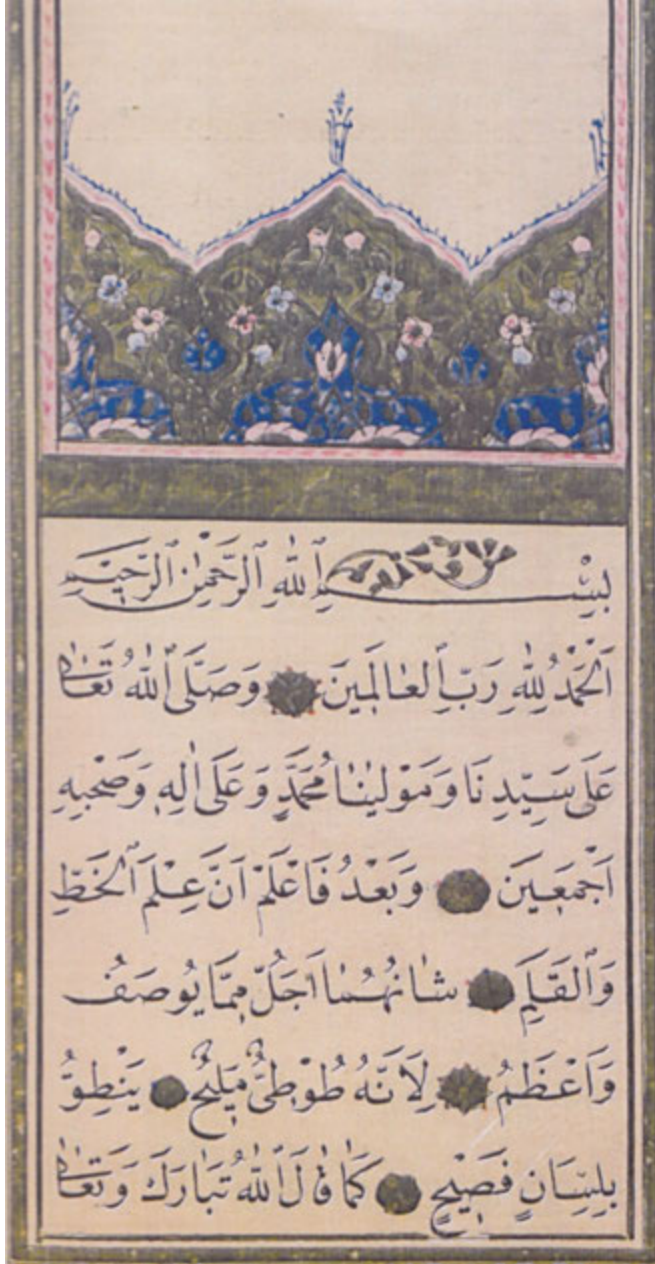 بِسْمِ ٱللّٰهِ ٱلرَّحْمٰنِ ٱلرَّحِيمِ
اَلْحَمْدُ لِلّٰهِ رَبِّ ٱلعَالَمِينَ وَصَلَّى ٱللّٰهُ تَعَالٰى
عَلَى سَيِّدِنَا وَمَوْلٰينَا مُحَمَّدٍ وَعَلَى اٰلِهِ وَصَحْبِهِ
اَجْمَعِينَ وَبَعْدُ فَاعْلَمْ اَنَّ عِلْمَ ٱلخَطِّ
وَٱلقَلَمِ شَانُهُمَا اَجَلُّ مِمَّا يُوصَفُ
وَاَعْظَمُ لِاَنَّهُ طُوطِىٌّ مَلِيحٌ يَنْطِقُ
بِلِسَانٍ فَصِيحٍ كَمَا قَالَ ٱللّٰهُ تَبَارَكَ وَتَعَالٰى